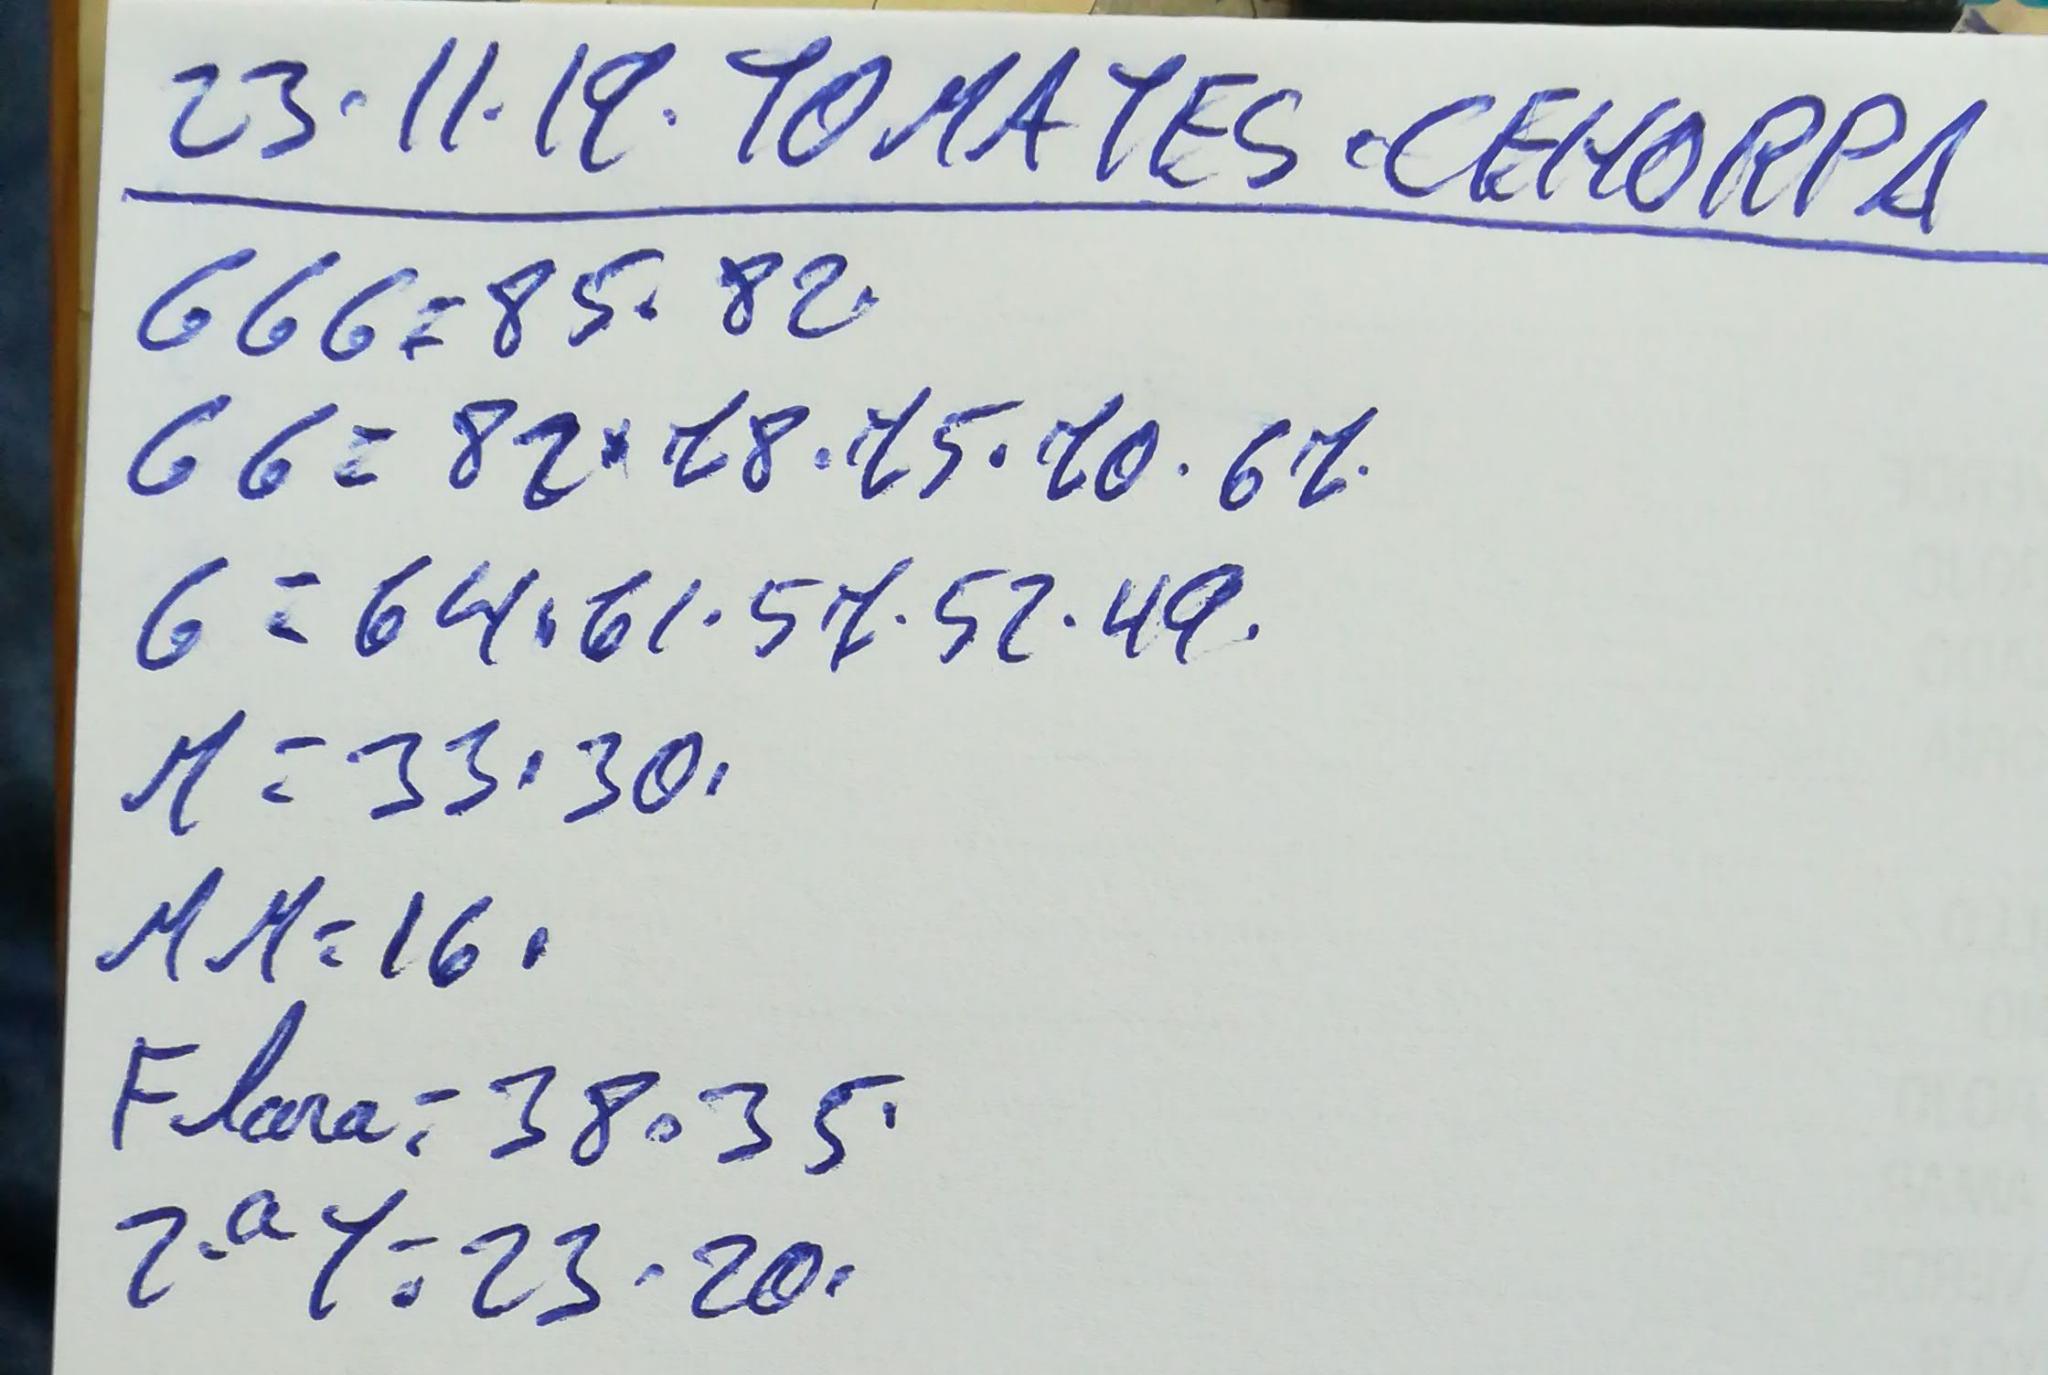 23.11.19. TOMATES. CEHORPA
GGG = 85. 82.
GG = 82. 78. 75. 70. 67.
G = 64. 61. 57. 52. 49.
M = 33. 30.
MM = 16.
F. lara = 38. 35.
2.ª Y = 23. 20.